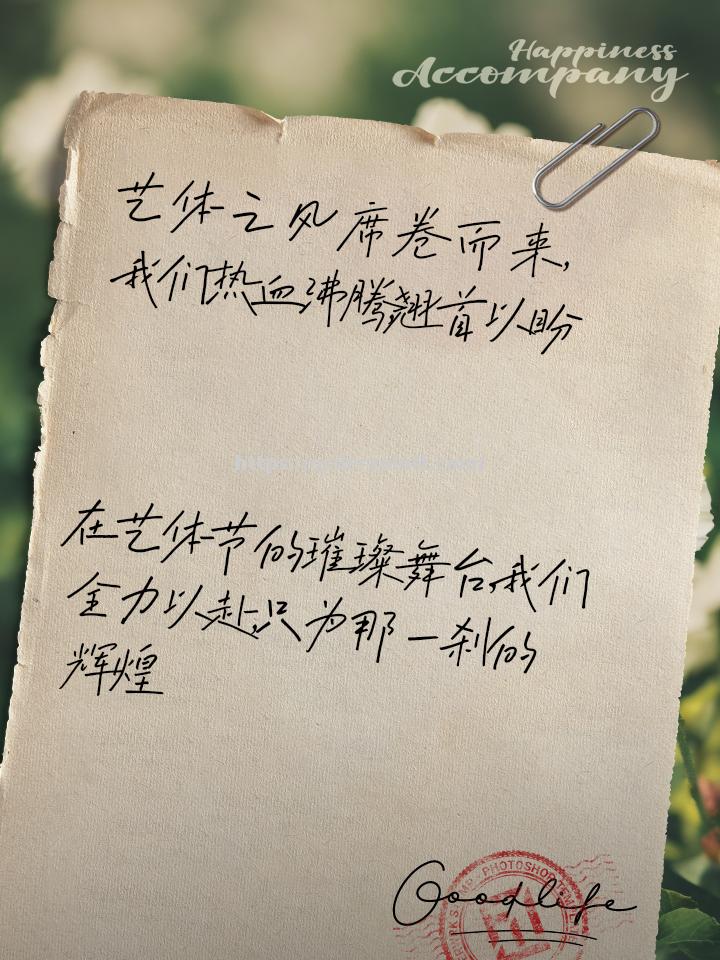 Happiness
Accompany
艺体之风席卷而来,
我们热血沸腾翘首以盼
在艺体节的璀璨舞台,我们
全力以赴,只为那一刹的
辉煌
Goodlife